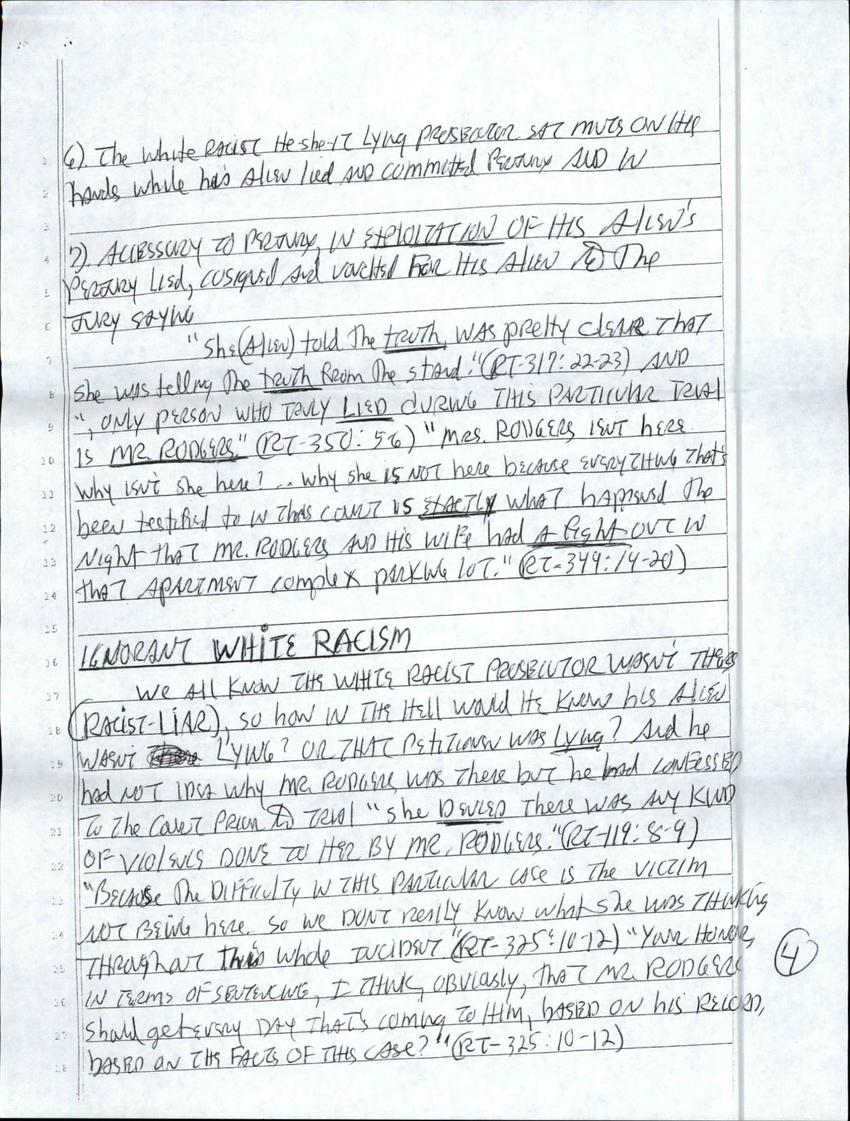 6). The white RACIST He-she-IT Lying PROSECUTOR SAT MUTE ON HIS
hands while his Alien lied AND committed Perjury AND IN
7). ACCESSORY TO PERJURY, IN EXPLOITATION OF HIS Alien's
PERJURY LIED, COSIGNED And vouched FOR His Alien TO The
JURY SAYING
"She (Alien) told The truth, WAS pretty clear THAT
she was telling The truth FROM The stand." (RT-317:22-23) AND
", ONLY PERSON WHO TRULY LIED DURING THIS PARTICULAR TRIAL
IS MR. RODGERS." (RT-350:5-6) "MRS. RODGERS ISNT HERE.
Why isn't she here? .. why she IS NOT here because EVERYTHING that's
been testified to in this court IS EXACTLY what happened The
Night that MR. RODGERS AND HIS WIFE had a fight OUT IN
that APARTMENT complex parking lot." (RT-349:14-20)
IGNORANT WHITE RACISM
We All KNOW THE WHITE RACIST PROSECUTOR WASN'T THERE
(RACIST-LIAR), so how in the Hell would He know his Alien
WASN'T LYING? OR THAT Petitioner WAS Lying? And he
had NOT IDEA why MR. RODGERS was there but he had CONFESSED
To The Court PRIOR TO TRIAL "she DENIED THERE WAS ANY KIND
OF VIOLENCE DONE TO HER BY MR. RODGERS." (RT-119:8-9)
"BECAUSE The DIFFICULTY IN THIS PARTICULAR CASE IS THE VICTIM
NOT BEING here. So we DON'T really KNOW what she was THINKING
THROUGHOUT This whole INCIDENT" (RT-325:10-12) "YOUR HONOR,
IN TERMS OF SENTENCING, I THINK, OBVIOUSLY, THAT MR. RODGERS
should get every DAY THAT'S coming TO HIM, BASED ON his RECORD,
BASED ON THE FACTS OF THIS CASE?" (RT-325:10-12)
4